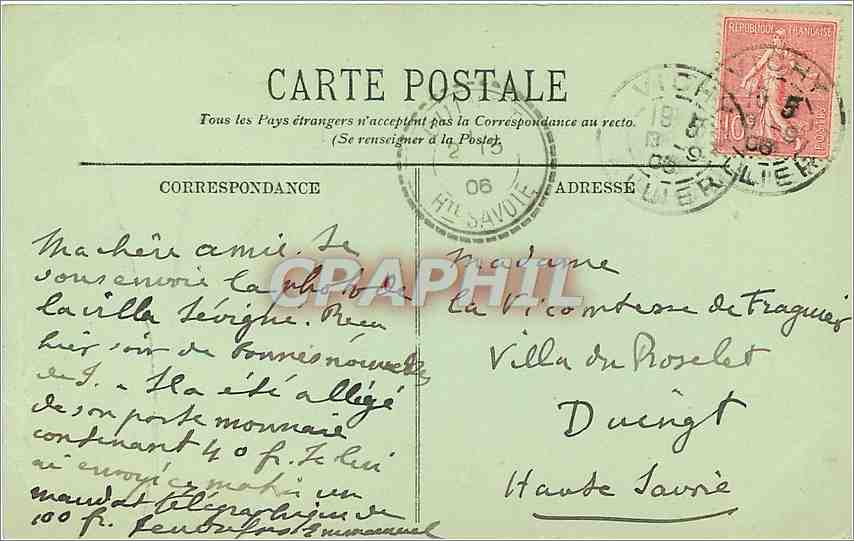 CARTE POSTALE
Tous les Pays étrangers n'acceptent pas la Correspondance au recto.
(Se renseigner à la Poste).
CORRESPONDANCE
Ma chère amie. Je
vous envoie la photo de
la villa Sévigné. Reçu
hier soir de bonnes nouvelles
de J. - Il a été allégé
de son porte monnaie
contenant 40 fr. Je lui
ai envoyé ce matin un
mandat télégraphique de
100 fr. Emmanuel
ADRESSE
Madame
La Vicomtesse de Fraguier
Villa du Roselet
Duingt
Haute Savoie
REPUBLIQUE FRANÇAISE
10
POSTES
VICHY
ALLIER
VICHY
ALLIER
06
HTE SAVOIE
CPAPHIL